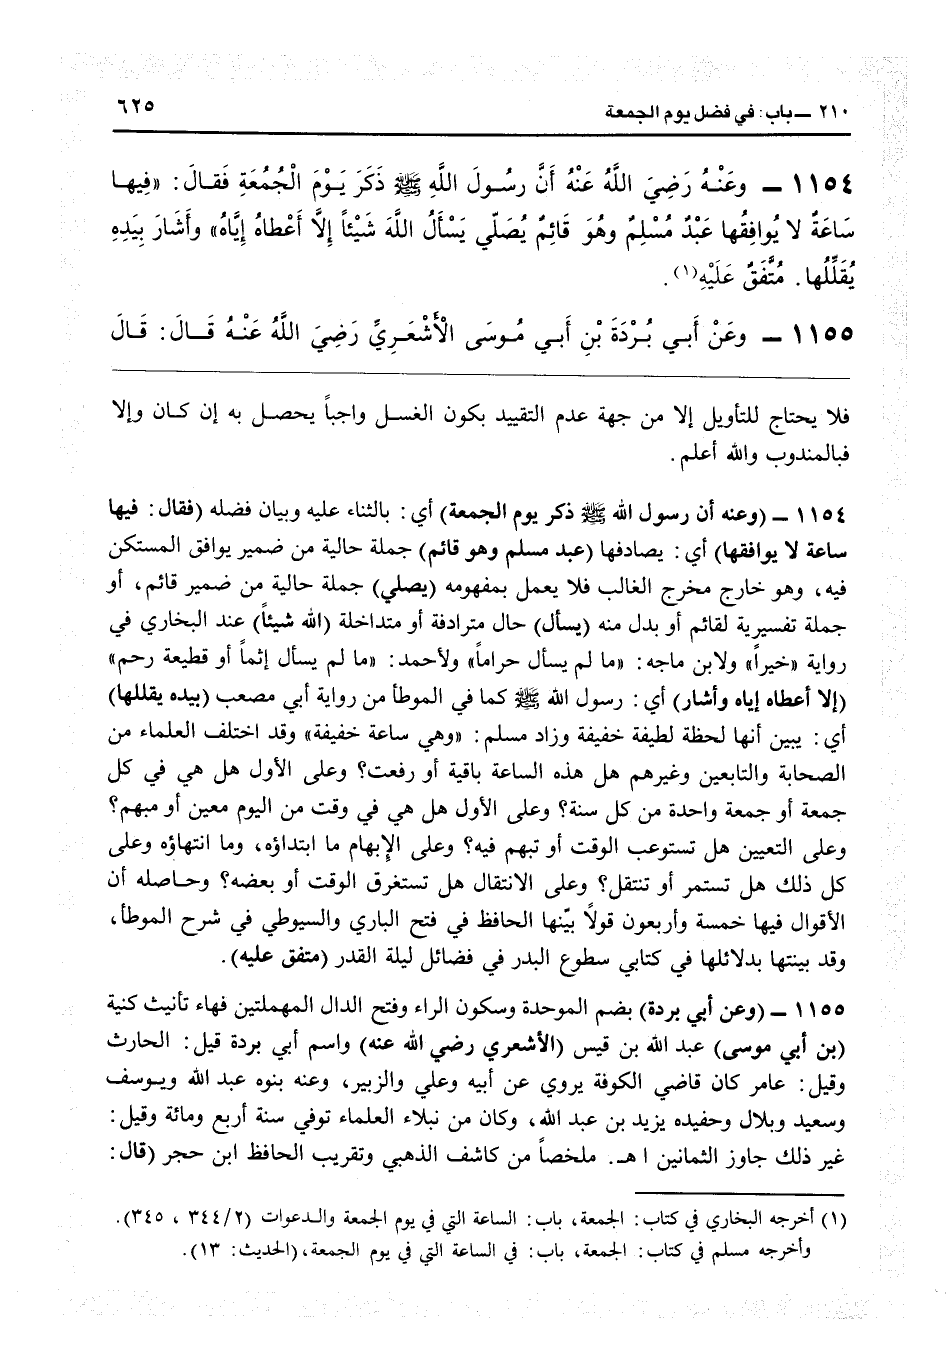 ٢١٠ ـ باب: في فضل يوم الجمعة ٦٢٥
١١٥٤ ـ وعَنْـهُ رَضِيَ اللَّهُ عَنْهُ أَنَّ رسُـولَ اللَّهِ ﷺ ذَكَرَ يَـوْمَ الْجُمُعَةِ فَقـالَ: «فِيهـا
سَاعَةٌ لا يُوافِقُها عَبْدٌ مُسْلِمٌ وهُوَ قَائِمٌ يُصَلّي يَسْأَلُ اللَّهَ شَيْئاً إلَّا أَعْطاهُ إيَّاهُ» وأَشَارَ بِيَدِهِ
يُقَلِّلُها. مُتَّفَقٌ عَلَيْهِ(١).
١١٥٥ ـ وعَنْ أَبـي بُـرْدَةَ بْنِ أَبـي مُـوسَى الْأَشْعَـرِيِّ رَضِيَ اللَّهُ عَنْـهُ قَـالَ: قَـالَ
فلا يحتاج للتأويل إلا من جهة عدم التقييد بكون الغسل واجباً يحصـل به إن كـان وإلا
فبالمندوب والله أعلم.
١١٥٤ ـ (وعنه أن رسول الله ﷺ ذكر يوم الجمعة) أي: بالثناء عليه وبيان فضله (فقال: فيها
ساعة لا يوافقها) أي: يصادفها (عبد مسلم وهو قائم) جملة حالية من ضمير يوافق المستكن
فيه، وهو خارج مخرج الغالب فلا يعمل بمفهومه (يصلي) جملة حالية من ضمير قائم، أو
جملة تفسيرية لقائم أو بدل منه (يسأل) حال مترادفة أو متداخلة (الله شيئاً) عند البخاري في
رواية «خيراً» ولابن ماجه: «ما لم يسأل حراماً» ولأحمد: «ما لم يسأل إثماً أو قطيعة رحم»
(إلا أعطاه إياه وأشار) أي: رسول الله ﷺ كما في الموطأ من رواية أبي مصعب (بيده يقللها)
أي: يبين أنها لحظة لطيفة خفيفة وزاد مسلم: «وهي ساعة خفيفة» وقد اختلف العلماء من
الصحابة والتابعين وغيرهم هل هذه الساعة باقية أو رفعت؟ وعلى الأول هل هي في كل
جمعة أو جمعة واحدة من كل سنة؟ وعلى الأول هل هي في وقت من اليوم معين أو مبهم؟
وعلى التعيين هل تستوعب الوقت أو تبهم فيه؟ وعلى الإبهام ما ابتداؤه، وما انتهاؤه وعلى
كل ذلك هل تستمر أو تنتقل؟ وعلى الانتقال هل تستغرق الوقت أو بعضه؟ وحـاصله أن
الأقوال فيها خمسة وأربعون قولاً بيّنها الحافظ في فتح الباري والسيوطي في شرح الموطأ،
وقد بينتها بدلائلها في كتابي سطوع البدر في فضائل ليلة القدر (متفق عليه).
١١٥٥ ـ (وعن أبي بردة) بضم الموحدة وسكون الراء وفتح الدال المهملتين فهاء تأنيث كنية
(بن أبي موسى) عبد الله بن قيس (الأشعري رضي الله عنه) واسم أبي بردة قيل: الحارث
وقيل: عامر كان قاضي الكوفة يروي عن أبيه وعلي والزبير، وعنه بنوه عبد الله ويـوسف
وسعيد وبلال وحفيده يزيد بن عبد الله، وكان من نبلاء العلماء توفي سنة أربع ومائة وقيل:
غير ذلك جاوز الثمانين ا هـ. ملخصاً من كاشف الذهبي وتقريب الحافظ ابن حجر (قال:
(١) أخرجه البخاري في كتاب: الجمعة، باب: الساعة التي في يوم الجمعة والـدعوات (٣٤٤/٢ ، ٣٤٥).
وأخرجه مسلم في كتاب: الجمعة، باب: في الساعة التي في يوم الجمعة، (الحديث: ١٣).